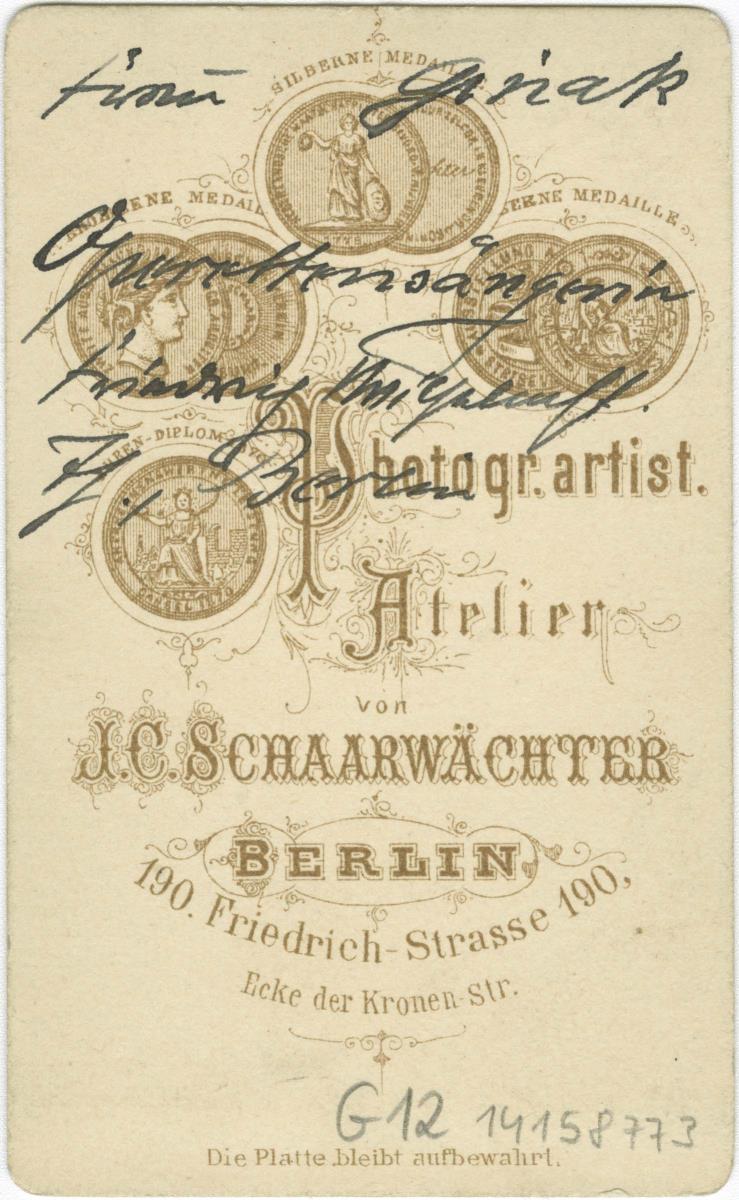 SILBERNE MEDAILLE
Frau
Operettensängerin
Friedrich Wilhelmst.
Th., Berlin
MEDAILLE
MEDAILLE
EHREN-DIPLOM
CASSEL 1870
Photogr. artist.
Atelier
von
J.C. SCHAARWÄCHTER
BERLIN
190. Friedrich-Strasse 190,
Ecke der Kronen-Str.
G12 14158773
Die Platte bleibt aufbewahrt.